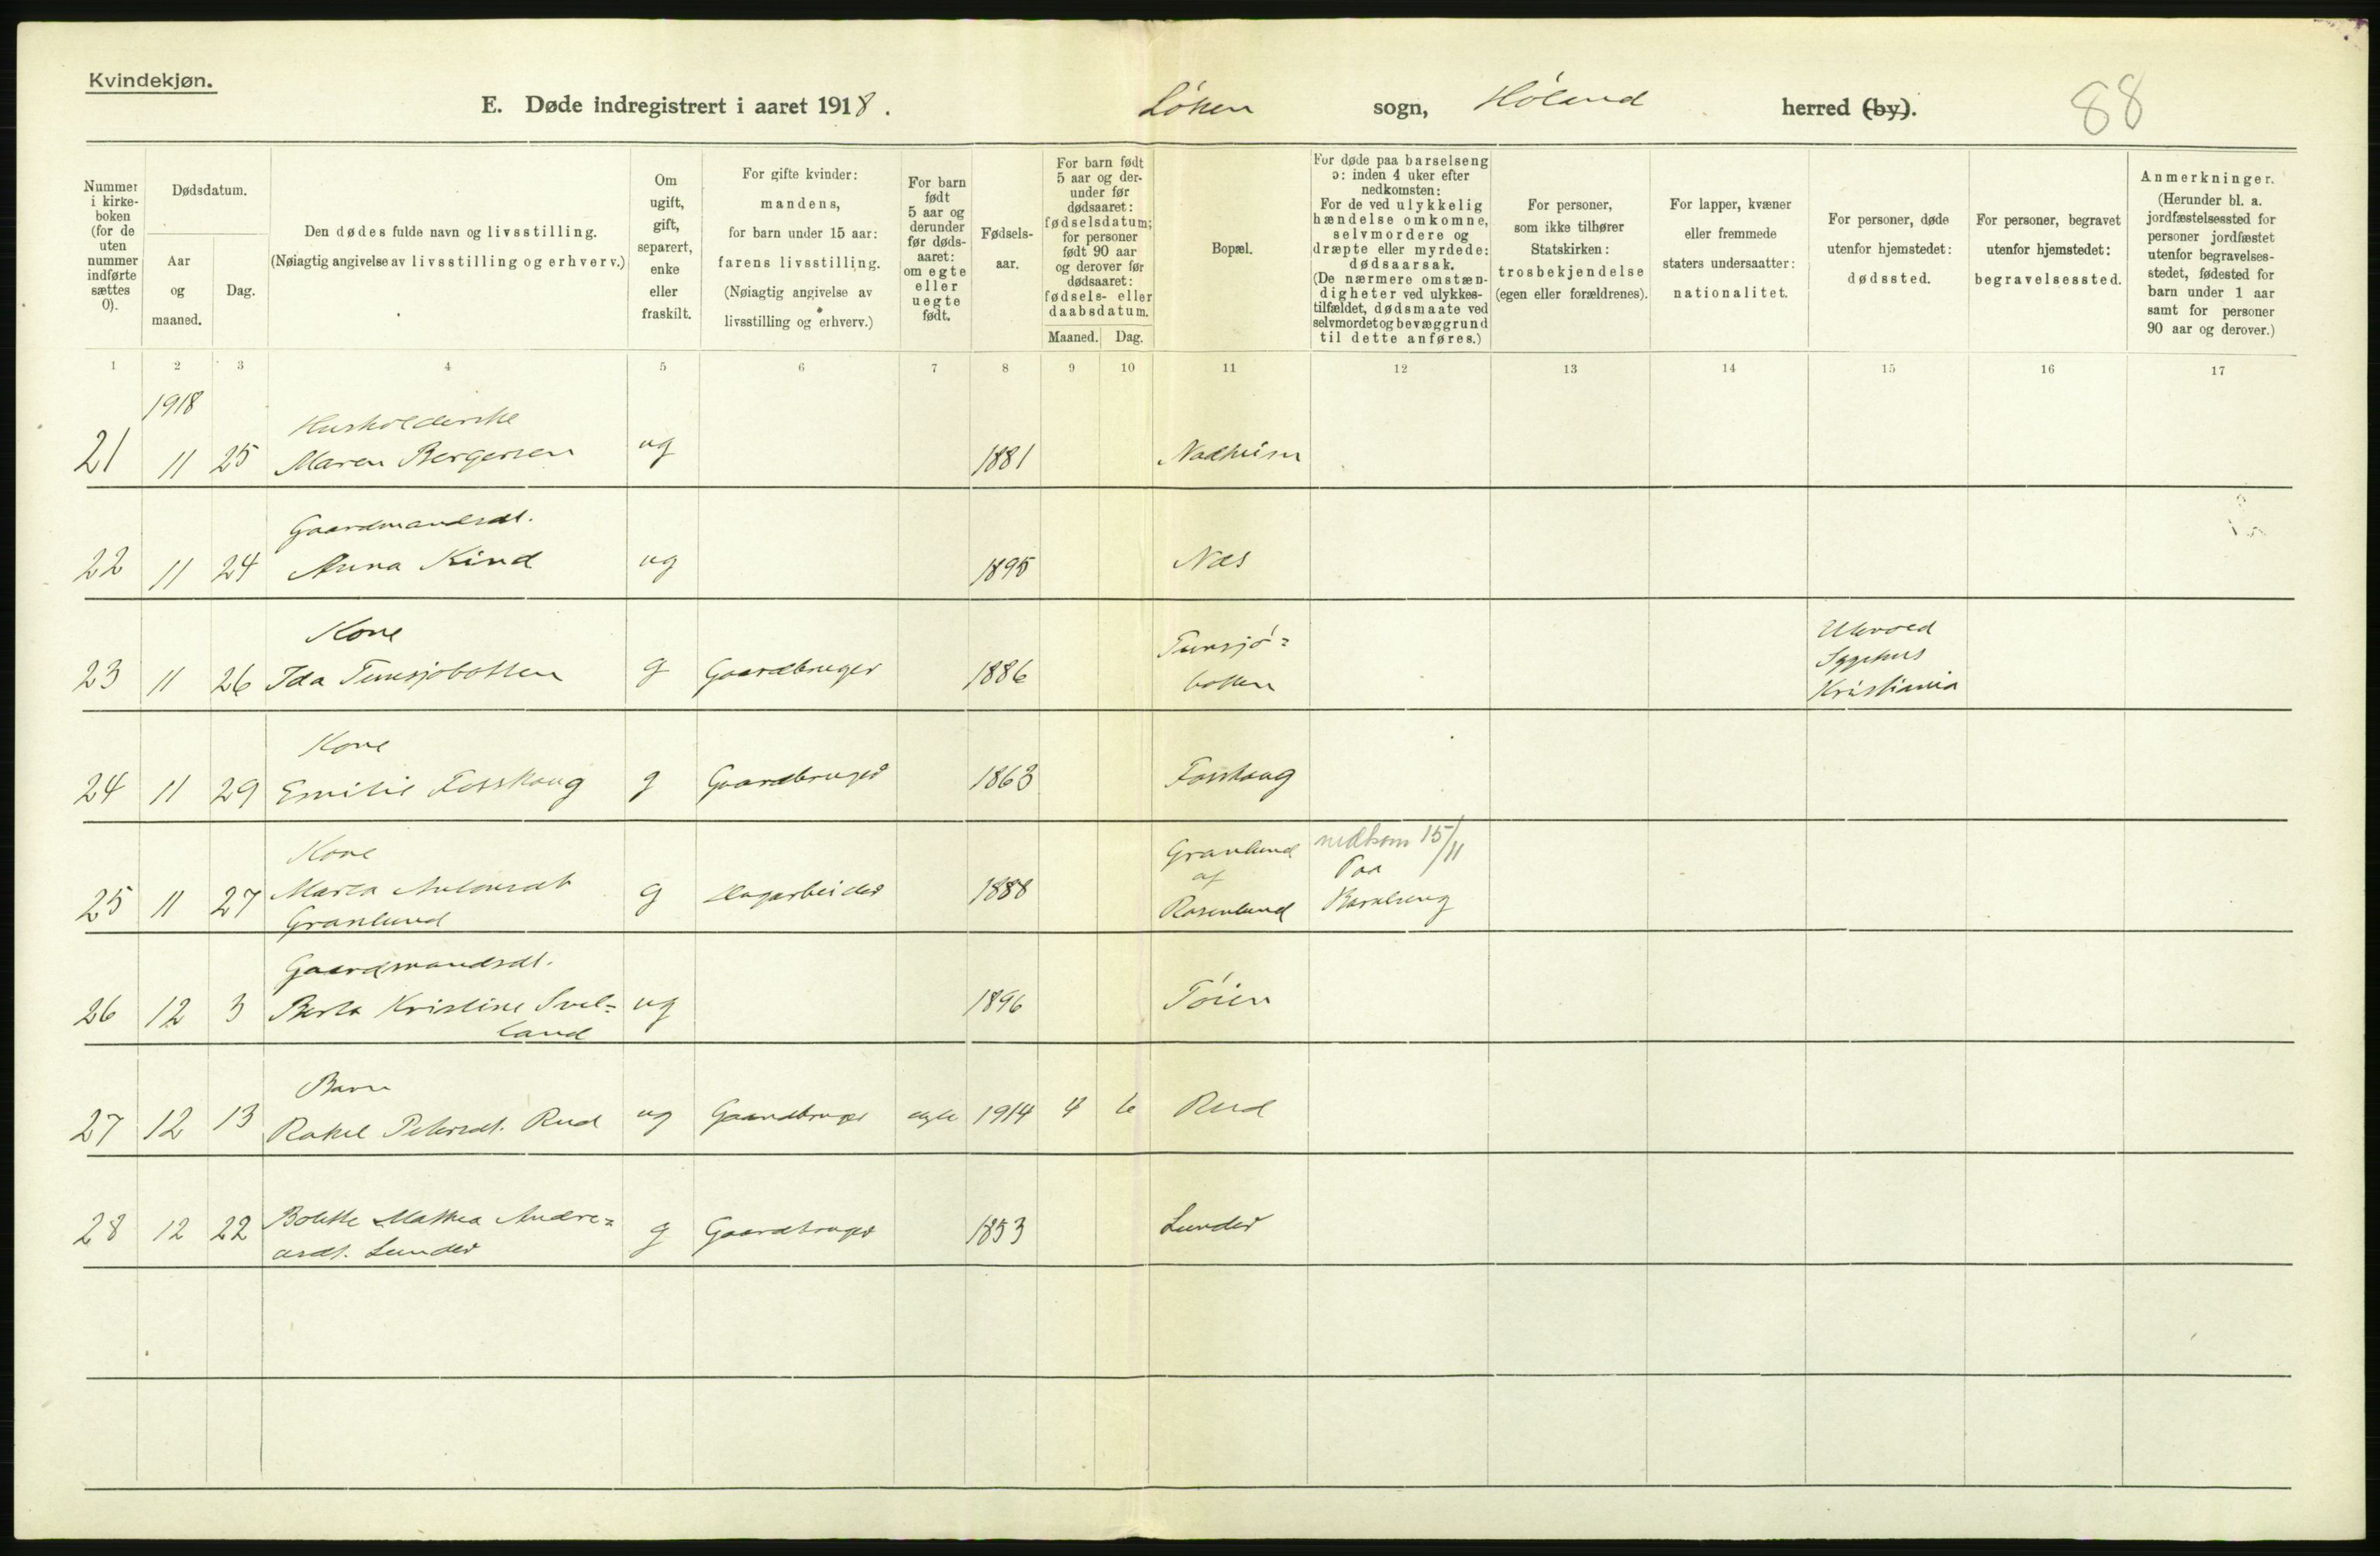 Kvindekjøn.
E. Døde indregistrert i aaret 1918. Löken sogn, Höland herred (by).
88
Nummer i kirkeboken (for de uten nummer indførte sættes 0).
Dødsdatum.
Aar og maaned.
Dag.
Den dødes fulde navn og livsstilling.
(Nøiagtig angivelse av livsstilling og erhverv.)
Om ugift, gift, separert, enke eller fraskilt.
For gifte kvinder: mandens, for barn under 15 aar: farens livsstilling.
(Nøiagtig angivelse av livsstilling og erhverv.)
For barn født 5 aar og derunder før dødsaaret: om egte eller uegte født.
Fødselsaar.
For barn født 5 aar og derunder før dødsaaret: fødselsdatum; for personer født 90 aar og derover før dødsaaret: fødsels- eller daabsdatum.
Maaned. Dag.
Bopæl.
For døde paa barselseng ɔ: inden 4 uker efter nedkomsten:
For de ved ulykkelig hændelse omkomne, selvmordere og dræpte eller myrdede: dødsaarsak.
(De nærmere omstændigheter ved ulykkestilfældet, dødsmaate ved selvmordet og bevæggrund til dette anføres.)
For personer, som ikke tilhører Statskirken: trosbekjendelse (egen eller forældrenes).
For lapper, kvæner eller fremmede staters undersaatter: nationalitet.
For personer, døde utenfor hjemstedet: dødssted.
For personer, begravet utenfor hjemstedet: begravelsessted.
Anmerkninger.
(Herunder bl. a. jordfæstelsessted for personer jordfæstet utenfor begravelsesstedet, fødested for barn under 1 aar samt for personer 90 aar og derover.)
1 2 3 4 5 6 7 8 9 10 11 12 13 14 15 16 17
1918
Husholderske
21 11 25 Maren Bergersen ug 1881 Nadheim
Gaardmandsdt.
22 11 24 Anna Kind ug 1895 Næs
Kone
23 11 26 Ida Tunsjøbotten g Gaardbruger 1886 Tunsjö=
botten
Ulevold
Sygehus
Kristiania
Kone
24 11 29 Emilie Fosshaug g Gaardbruger 1863 Fosshaug
Kone
25 11 27 Maren Antonsdt g Dagarbeider 1888
Granlund
Granlund
af
Rosenlund
nedkom 15/11
Paa
Barselseng
Gaardmandsdt.
26 12 3 Berta Kristine Svel= ug 1896 Töien
land
Barn
27 12 13 Rakel Petersdt. Rud ug Gaardbruger egte 1914 4 6 Rud
28 12 22 Bolette Mathea Andre= g Gaardbruger 1853 Lunder
asdt. Lunder